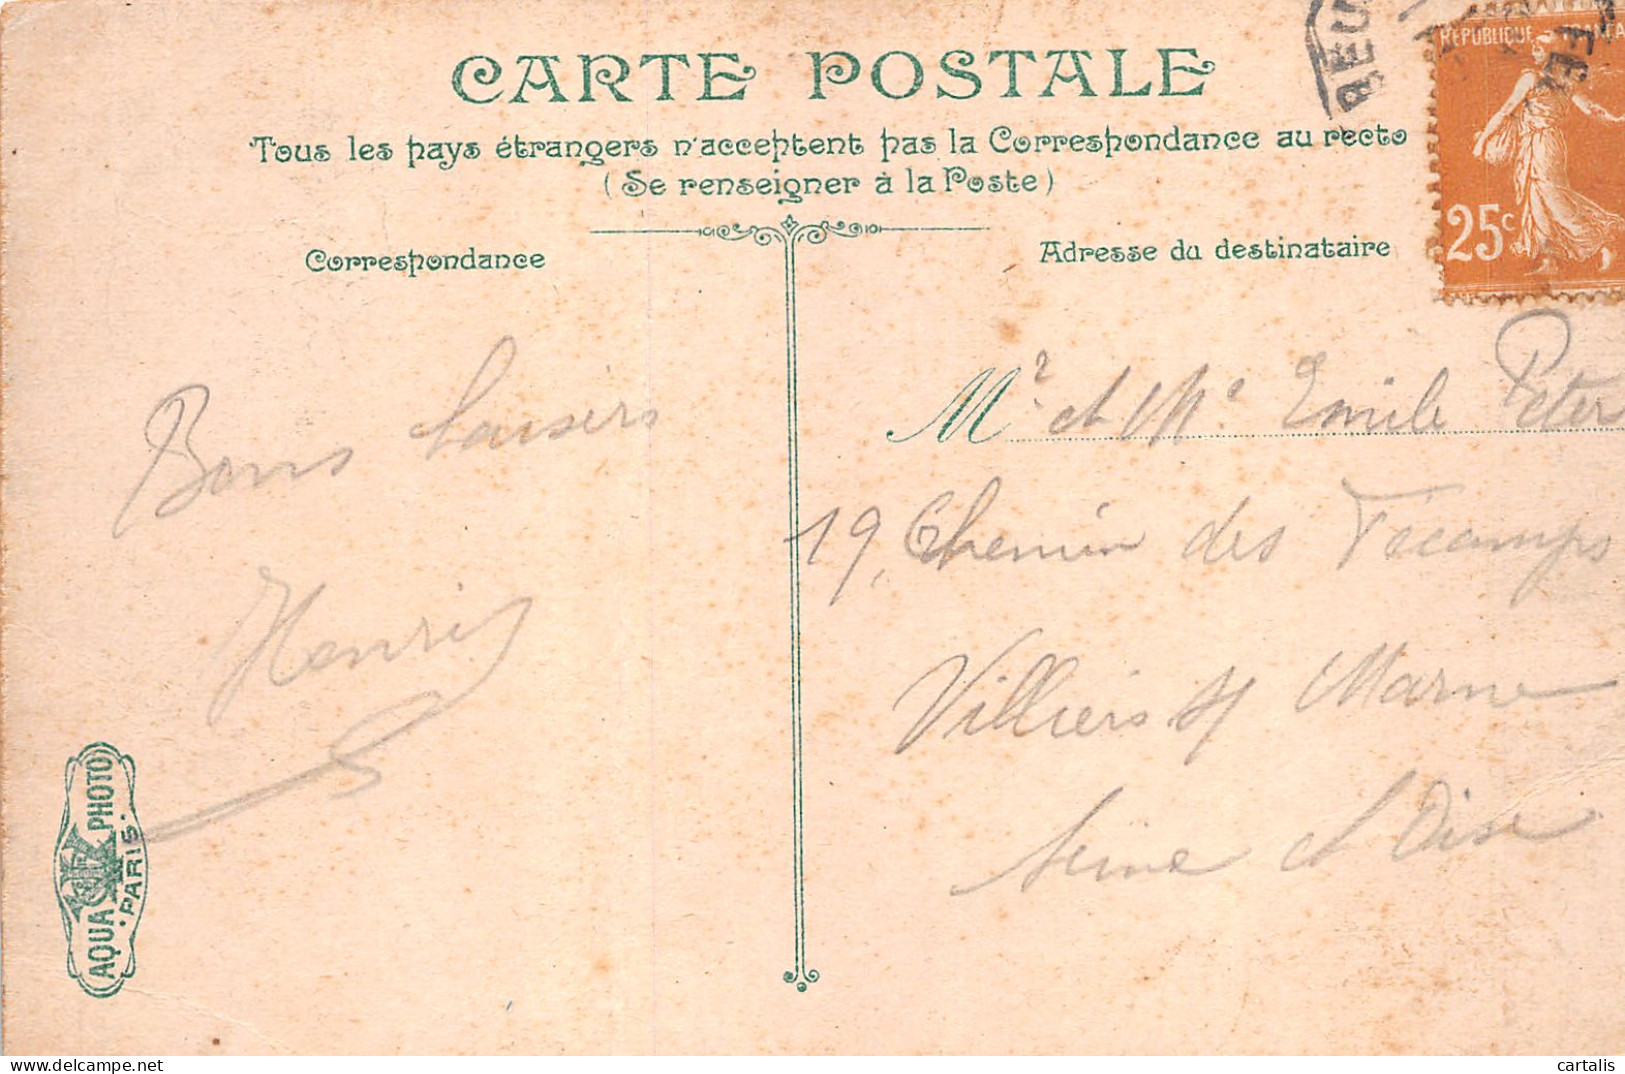 CARTE POSTALE
Tous les pays étrangers n'acceptent pas la Correspondance au recto
(Se renseigner à la Poste)
Correspondance
Adresse du destinataire
RÉPUBLIQUE FRANÇA
25c
Bons baisers
Henri
Mr et Me Emile Peter
19, Chemin des Fécamps
Villiers s/ Marne
Seine et Oise
AQUA PHOTO
PARIS
cartalis